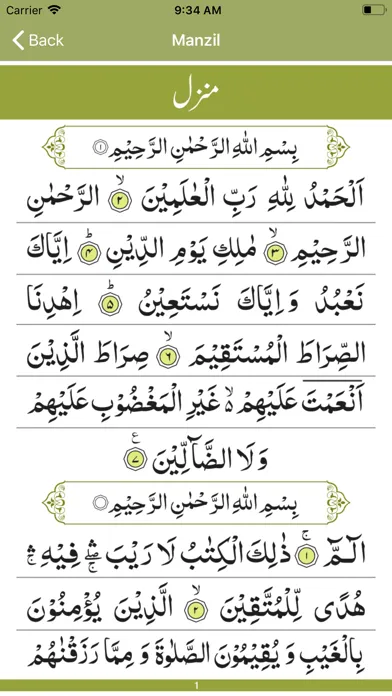 Carrier 9:34 AM
Back Manzil
منزل
بِسْمِ اللهِ الرَّحْمٰنِ الرَّحِيْمِ ۝۱
اَلْحَمْدُ لِلّٰهِ رَبِّ الْعٰلَمِيْنَ ۙ۝۲ الرَّحْمٰنِ
الرَّحِيْمِ ۙ۝۳ مٰلِكِ يَوْمِ الدِّيْنِ ؕ۝۴ اِيَّاكَ
نَعْبُدُ وَ اِيَّاكَ نَسْتَعِيْنُ ؕ۝۵ اِهْدِنَا
الصِّرَاطَ الْمُسْتَقِيْمَ ۙ۝۶ صِرَاطَ الَّذِيْنَ
اَنْعَمْتَ عَلَيْهِمْ ۙ۬ۦ غَيْرِ الْمَغْضُوْبِ عَلَيْهِمْ
وَلَا الضَّآلِّيْنَ ۧ۝۷
بِسْمِ اللهِ الرَّحْمٰنِ الرَّحِيْمِ ۝
الٓـمّٓ ۚ۝۱ ذٰلِكَ الْكِتٰبُ لَا رَيْبَ ۛۚ فِيْهِ ۛۚ
هُدًى لِّلْمُتَّقِيْنَ ۙ۝۲ الَّذِيْنَ يُؤْمِنُوْنَ
بِالْغَيْبِ وَ يُقِيْمُوْنَ الصَّلٰوةَ وَ مِمَّا رَزَقْنٰهُمْ
1